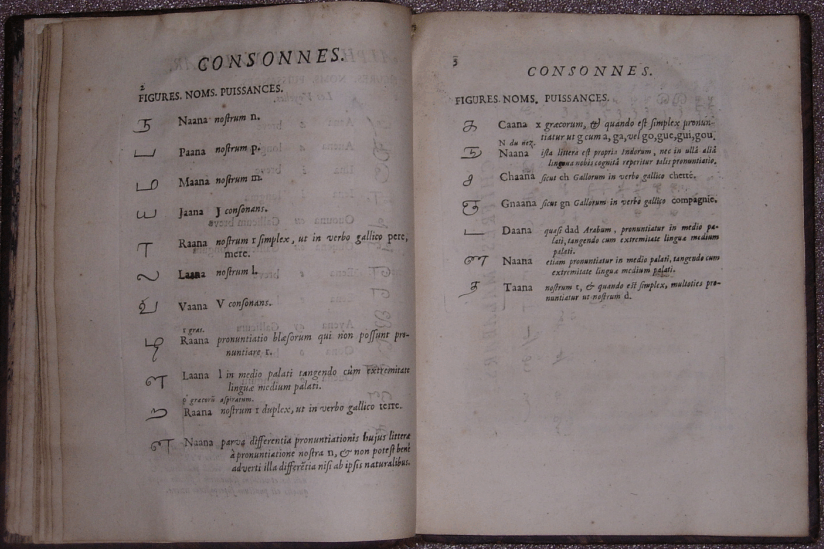 CONSONNES.
2
FIGURES. NOMS. PUISSANCES.
Naana nostrum n.
Paana nostrum p.
Maana nostrum m.
Jaana J consonans.
Raana nostrum r simplex, ut in verbo gallico pere,
mere.
Laana nostrum l.
Vaana V consonans.
r gras.
Raana pronuntiatio blæsorum qui non possunt pro-
nuntiare r.
Laana l in medio palati tangendo cùm extremitate
linguæ medium palati.
aspiratum.
Raana nostrum r duplex, ut in verbo gallico terre.
Naana parva differentia pronuntiationis hujus litteræ
à pronuntiatione nostra n, & non potest benè
adverti illa differẽtia nisi ab ipsis naturalibus.
3
CONSONNES.
FIGURES. NOMS. PUISSANCES.
Caana x græcorum, & quando est simplex pronun-
tiatur ut g cum a, ga, vel go, gue, gui, gou.
N du nez.
Naana ista littera est propria Indorum, nec in ullâ aliâ
lingua nobis cognitâ reperitur talis pronuntiatio.
Chaana sicut ch Gallorum in verbo gallico cherté.
Gnaana sicut gn Gallorum in verbo gallico compagnie.
Daana quasi dad Arabum, pronuntiatur in medio pa-
lati, tangendo cum extremitate linguæ medium
palati.
Naana etiam pronuntiatur in medio palati, tangendo cum
extremitate linguæ medium palati.
Taana nostrum t, & quando est simplex, multoties pro-
nuntiatur ut nostrum d.